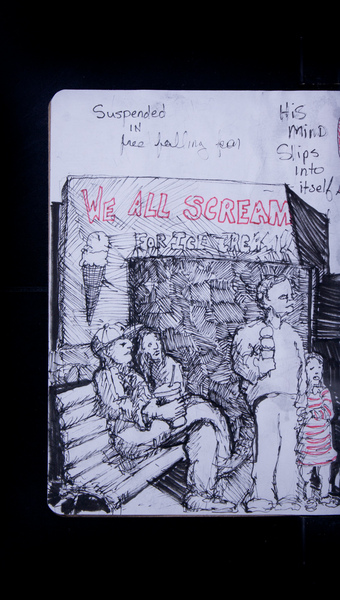 Suspended
IN
free falling fear
His
MIND
Slips
into
itself
WE ALL SCREAM
FOR ICE